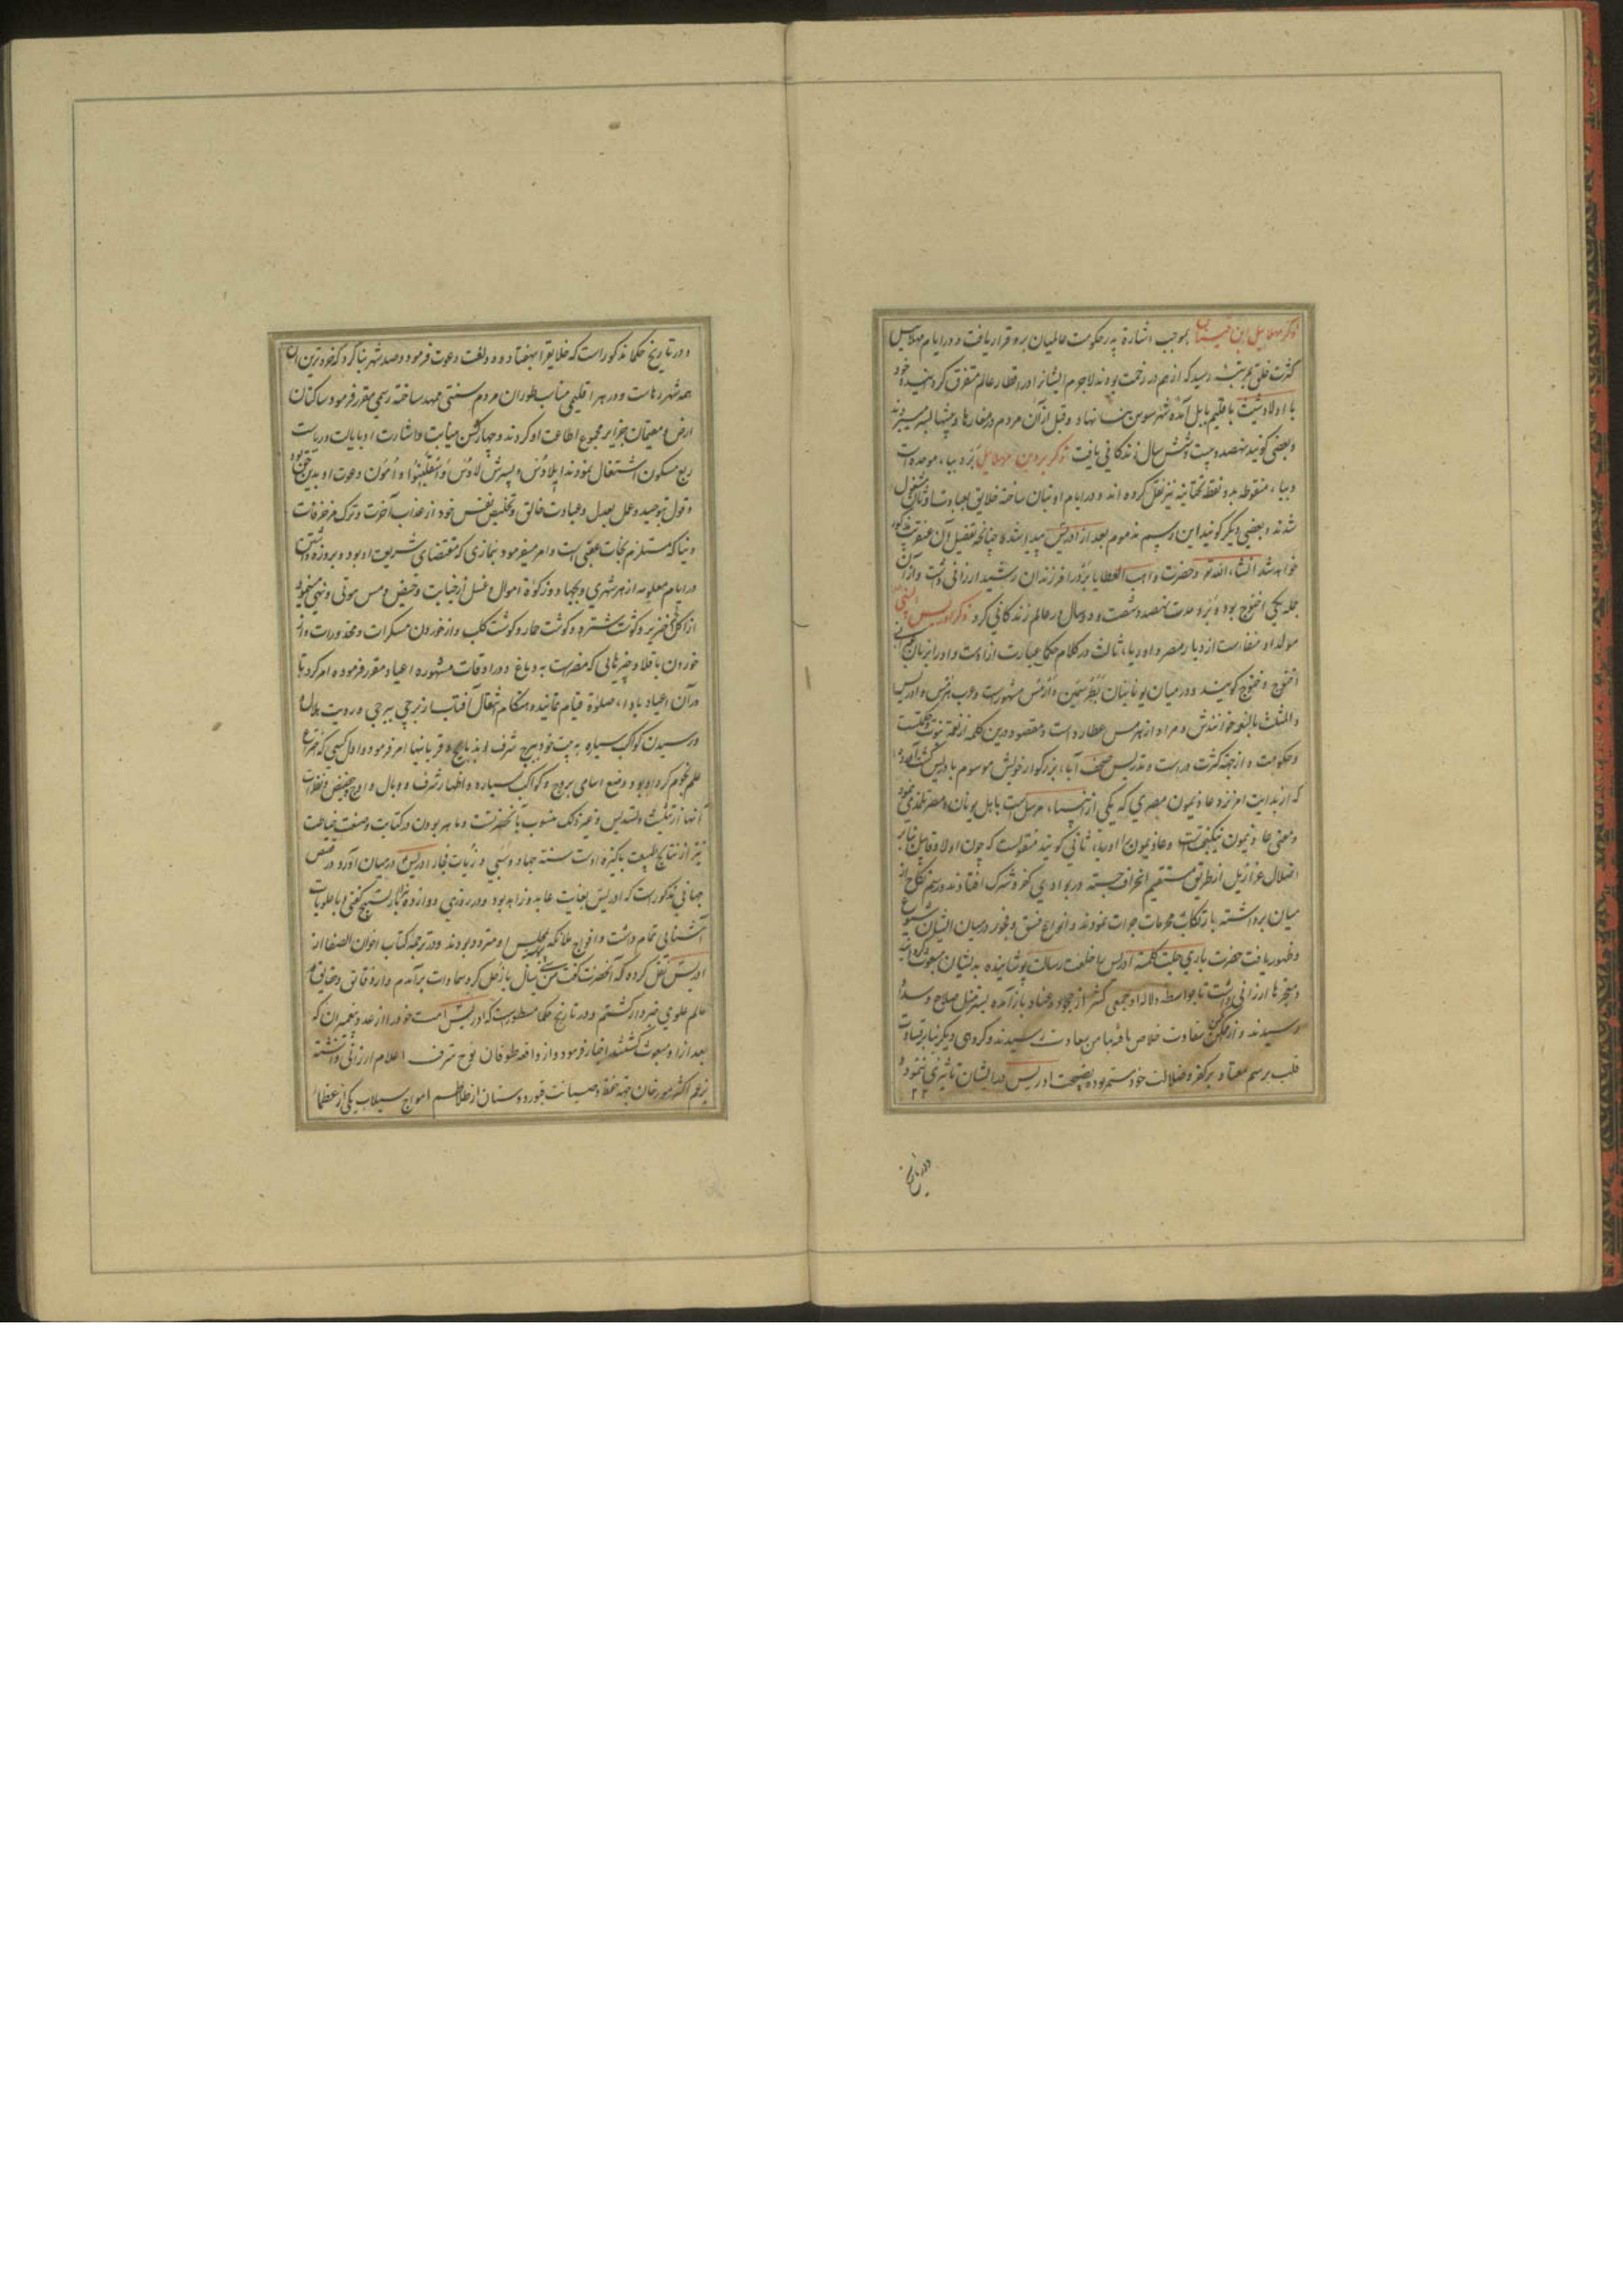 ذکر مهلاییل ابن قینان بموجب اشارة پدر حکومت عالمیان برو قرار یافت و در ایام مهلاییل
کثرت خلق بمرتبه رسید که از هم در زحمت بودند لاجرم ایشانرا در اقطار عالم متفرق کردانیده خود
با اولاد شیث باقلیم بابل آمده شهر سوس بنا نهاد و قبل از آن مردم در مغارها و بیشها بسر میبردند
و بعضی کویند نهصد و بیست و شش سال زندکانی یافت ذکر برد بن مهلاییل برد بباء موحده است
و بیاء منقوطه بدو نقطه تحتانیه نیز نقل کرده اند و در ایام او بتان ساخته خلایق بعبادت اوثان مشغول
شدند و بعضی دیکر کویند این رسم مذموم بعد از ادریس پیدا شده چنانچه تفصیل آن عنقریب مذکور
خواهد شد انشاء الله تع و حضرت واهب العطایا برد را فرزندان رشید ارزانی داشت و از آن
جمله یکی اخنوخ بود و برد مدت نهصد و شصت و دو سال در عالم زندکانی کرد ذکر ادریس النبی
مولد او منف است از دیار مصر و اوریاء ثالث در کلام حکما عبارت از اوست و او را بزبان
اخنوخ و خنوخ کویند و در میان یونانیان بطرسمین و ارمس مشهورست و عرب هرمس و ادریس
و المثلث بالنعمه خوانندش و مراد از هرمس عطارد است و مقصود درین کلمه از نعمة نبوت و حکمتست
و حکومت و از جهة کثرت دراست و تدریس صحف آباء بزرکوار خویش موسوم بادریس کشت آورده اند
که از بدایت امر نزد عاذیمون مصری که یکی از انبیاء مرسل است بابل یونان و مصر تلمذ می نمود
و معنی عاذیمون نیکبخت است و عاذیمون را اوریاء ثانی کویند منقولست که چون اولاد قابیل بنابر
اضلال عزازیل از طریق مستقیم انحراف جسته در بوادی کفر و شرک افتادند و رسم نکاح از
میان برداشته بارتکاب محرمات جرات نمودند و انواع فسق و فجور در میان ایشان شیوع
و ظهور یافت حضرت باری جلت کلمته ادریس را خلعت رسالت پوشانیده بدیشان مبعوث کردانید
و معجزها ارزانی داشت تا بواسطه دلالت او جمعی کثیر از جحود و عناد باز آمده بسر منزل صلاح و سداد
رسیدند و از شقاوت خلاص یافته بمامن سعادت رسیدند و کروهی دیکر بنابر قساوت
قلب برسم معتاد بر کفر و ضلالت خود مستمر بوده نصیحت ادریس در ایشان تاثیری ننمود و
۲۲
در تاریخ
و در تاریخ حکما مذکور است که خلایق را بهفتاد و دو لغت دعوت فرمود و صد شهر بنا کرد که خردترین آن
همه شهر رهاست و در هر اقلیمی مناسب طور آن مردم سنتی ممهد ساخته رسمی مقرر فرمود و ساکنان
ارض و مقیمان جزایر مجموع اطاعت او کردند و چهار کس به نیابت و اشارت او بایالت و ریاست
ربع مسکون اشتغال نمودند ایلاوس و پسرش لاوس و اسقلینوا و امون و دعوت او بدین حق بود
و قول بتوحید و عمل بعدل و عبادت خالق و تخلیص نفس خود از عذاب آخرت و ترک مزخرفات
دنیا که مستلزم نجات عقبی است و امر میفرمود بنمازی که مقتضای شریعت او بود و بروزه داشتن
در ایام معلومه از هر شهری و بجهاد و زکوة اموال و غسل از جنابت و حیض و مس موتی و نهی مینمود
از اکل خنزیر و کوشت شتر و کوشت حمار و کوشت کلب و از خوردن مسکرات و مخدورات و از
خوردن باقلا و چیزهایی که مضرست به دماغ و در اوقات مشهوره اعیاد مقرر فرموده امر کرد تا
در آن اعیاد باداء صلوة قیام نمایند و هنکام انتقال آفتاب از برجی ببرجی و رویت هلال
و رسیدن کواکب سیاره به بیت خود و برج شرف او بذبایح و قربانیها امر فرمود و اول کسی که اختراع
علم نجوم کرد او بود و وضع اسامی بروج و کواکب سیاره و اظهار شرف و وبال و اوج و حضیض و نظرات
آنها از تثلیث و تسدیس و غیر ذلک منسوب بآنحضرتست و ماهر بودن در کتابت و صنعت خیاطت
نیز از نتایج طبیعت پاکیزه اوست سنت جهاد و سبی ذریات فجار ادریس در میان آورد و در قصص
جهانی مذکور است که ادریس بغایت عابد و زاهد بود و در روزی دوازده هزار بار تسبیح کفتی و با علویات
آشنایی تمام داشت و افواج ملائکه بمجلس او متردد بودند و در ترجمه کتاب اخوان الصفا از
ادریس نقل کرده که آنحضرت کفت من سی سال با زحل کرد سماوات برآمدم و از دقایق و حقایق
عالم علوی خبردار کشتم و در تاریخ حکما مسطورست که ادریس امت خود را از عدد پیغمبران که
بعد از او مبعوث کشتند اخبار فرمود و از واقعه طوفان نوح شرف اعلام ارزانی داشته
بزعم اکثر مورخان جهة حفظ و صیانت قبور دوستان از تلاطم امواج سیلاب یکی از عظماء